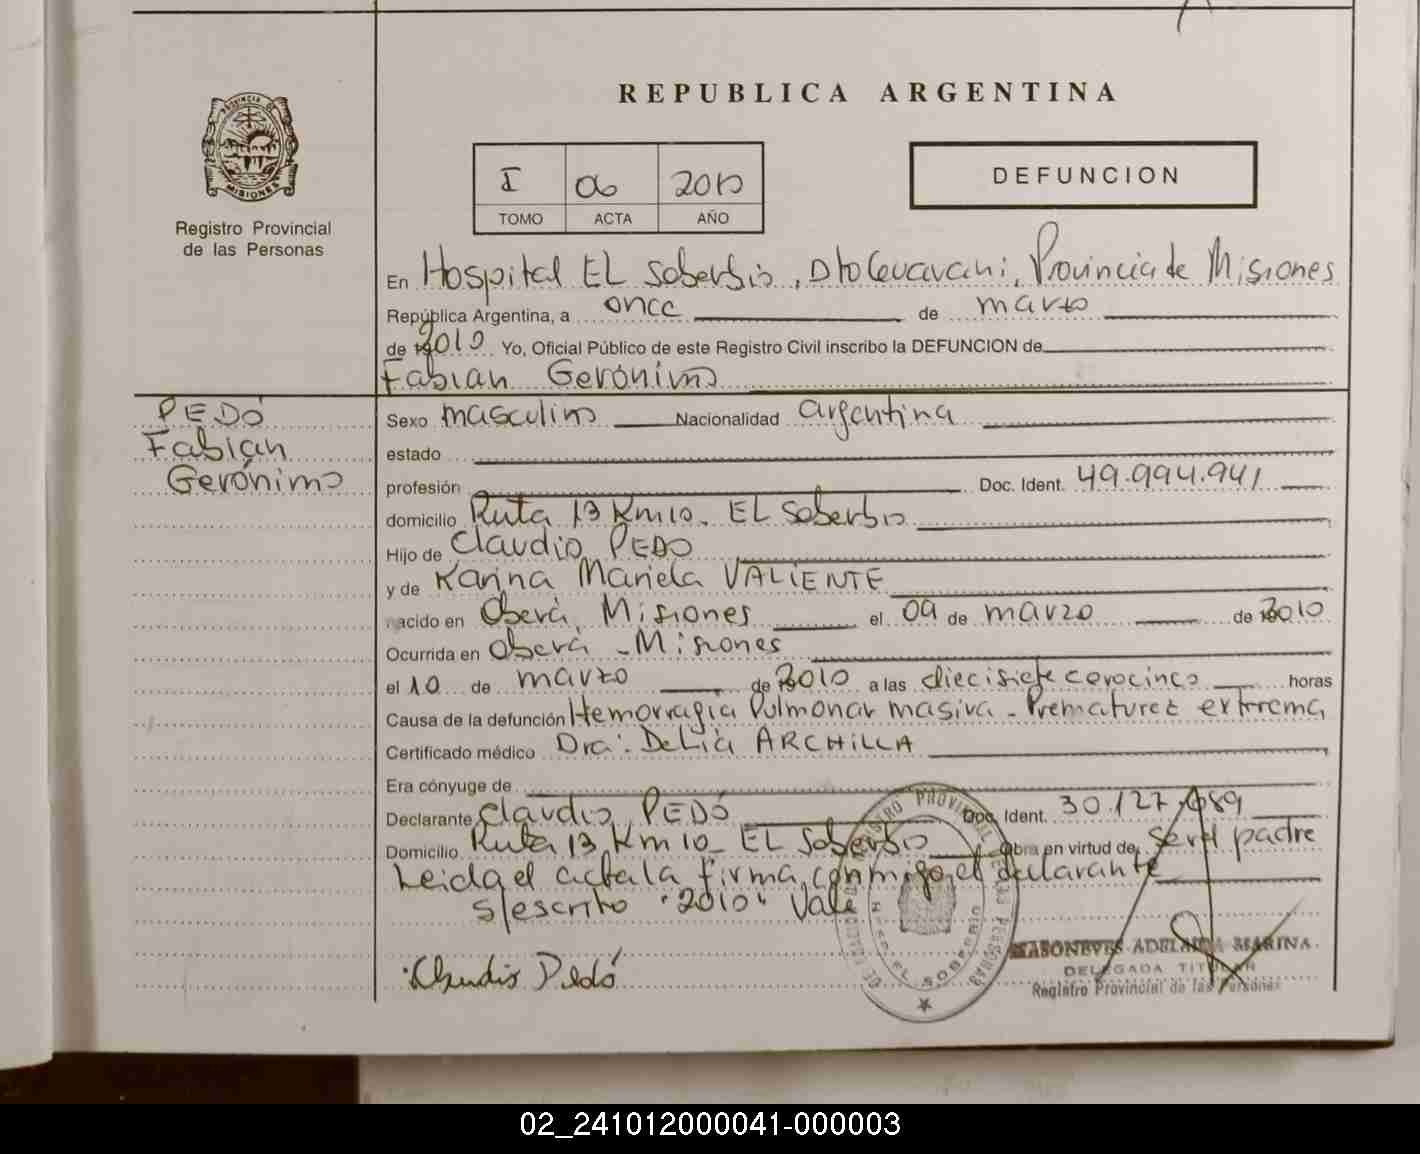 REPUBLICA ARGENTINA
PROVINCIA DE
MISIONES
Registro Provincial
de las Personas
I 06 2010
TOMO ACTA AÑO
DEFUNCION
En Hospital EL Soberbio, Dto Guaraní, Provincia de Misiones
República Argentina, a once de marzo
de 2010 Yo, Oficial Público de este Registro Civil inscribo la DEFUNCION de
Fabian Gerónimo
PEDÓ
Fabián
Gerónimo
Sexo masculino Nacionalidad argentina
estado
profesión Doc. Ident. 49.994.941
domicilio Ruta 13 Km 10. EL Soberbio
Hijo de Claudio PEDO
y de Karina Mariela VALIENTE
nacido en Oberá, Misiones el 09 de marzo de 2010
Ocurrida en Oberá - Misiones
el 10 de marzo de 2010 a las diecisiete cerocinco horas
Causa de la defunción Hemorragia Pulmonar masiva - Prematurez extrema
Certificado médico Dra: Delia ARCHILLA
Era cónyuge de
Declarante Claudio PEDÓ Doc. Ident. 30.127.089
Domicilio Ruta 13 Km 10 - EL Soberbio Obra en virtud de ser el padre
Leida el acta la firma conmigo el declarante
s/escrito "2010" Vale
Claudio Pedó
REGISTRO PROVINCIAL DE LAS PERSONAS
EL SOBERBIO
MASONEVES ADELAIDA MARINA
DELEGADA TITULAR
Registro Provincial de las Personas
02_241012000041-000003